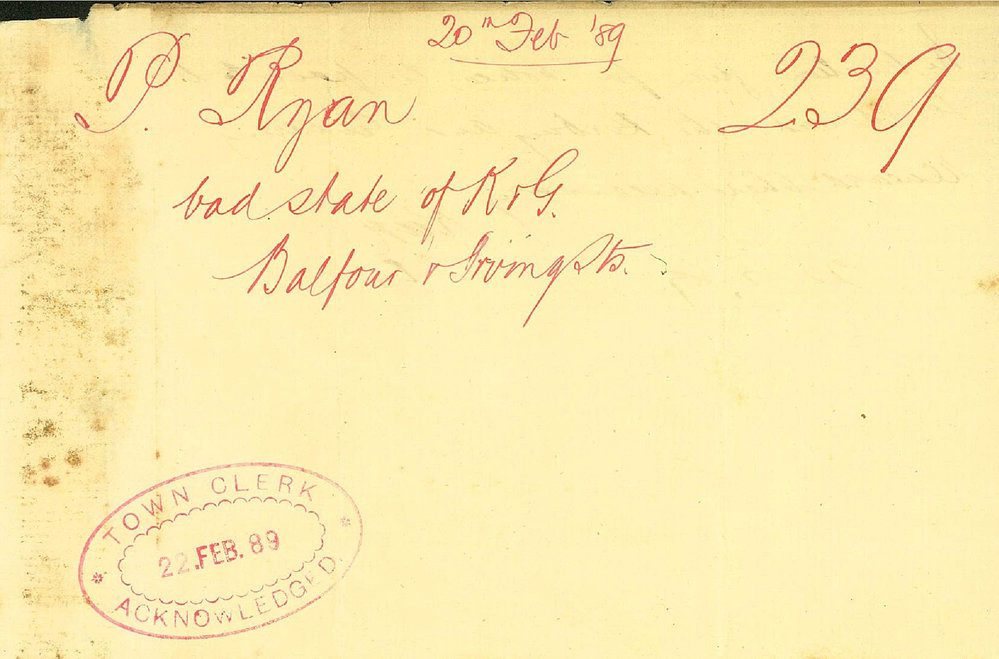 20th Feb '89
P. Ryan 239
bad state of K & G.
Balfour & Irving Sts.
TOWN CLERK
22. FEB. 89
ACKNOWLEDGED.